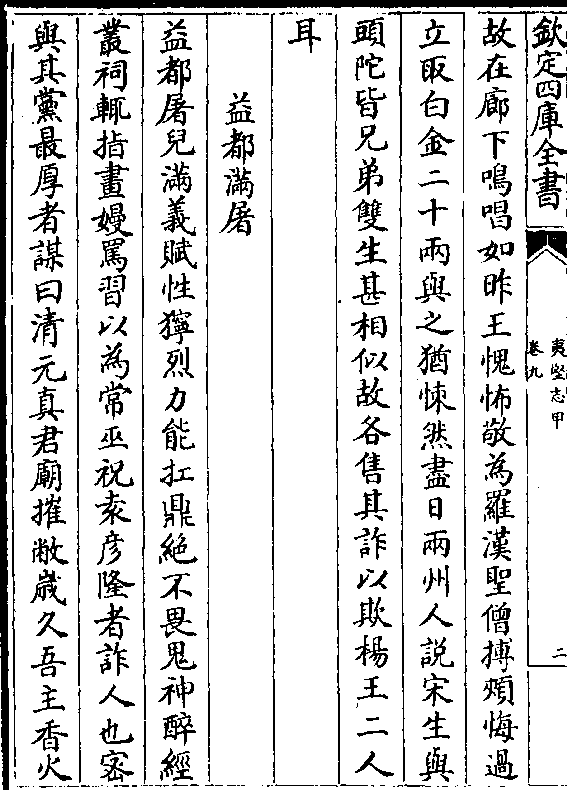 欽定四庫全書
夷堅志甲
卷九
二
故在廊下鳴唱如昨王愧怖敬為羅漢聖僧搏頰悔過
立取白金二十兩與之猶悚然盡日兩州人説宋生與
頭陀皆兄弟雙生甚相似故各售其詐以欺楊王二人
耳
益都滿屠
益都屠兒滿義賦性獰烈力能扛鼎絶不畏鬼神醉經
叢祠輒指畫嫚罵習以為常巫祝袁彦隆者詐人也密
與其黨最厚者謀曰清元真君廟摧敝歲久吾主香火